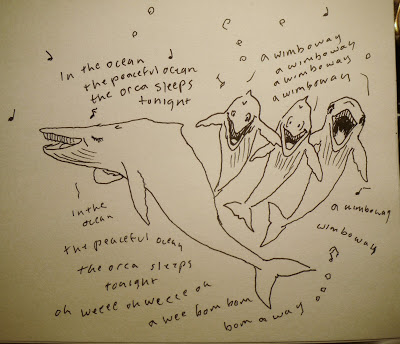 in the ocean
the peaceful ocean
the orca sleeps
tonight
a wimboway
a wimboway
a wimboway
a wimboway
in the
ocean
the peaceful ocean
the orca sleeps
tonight
oh weeee oh weeee oh
a wee bom bom
bom a way
a wimboway
wimboway